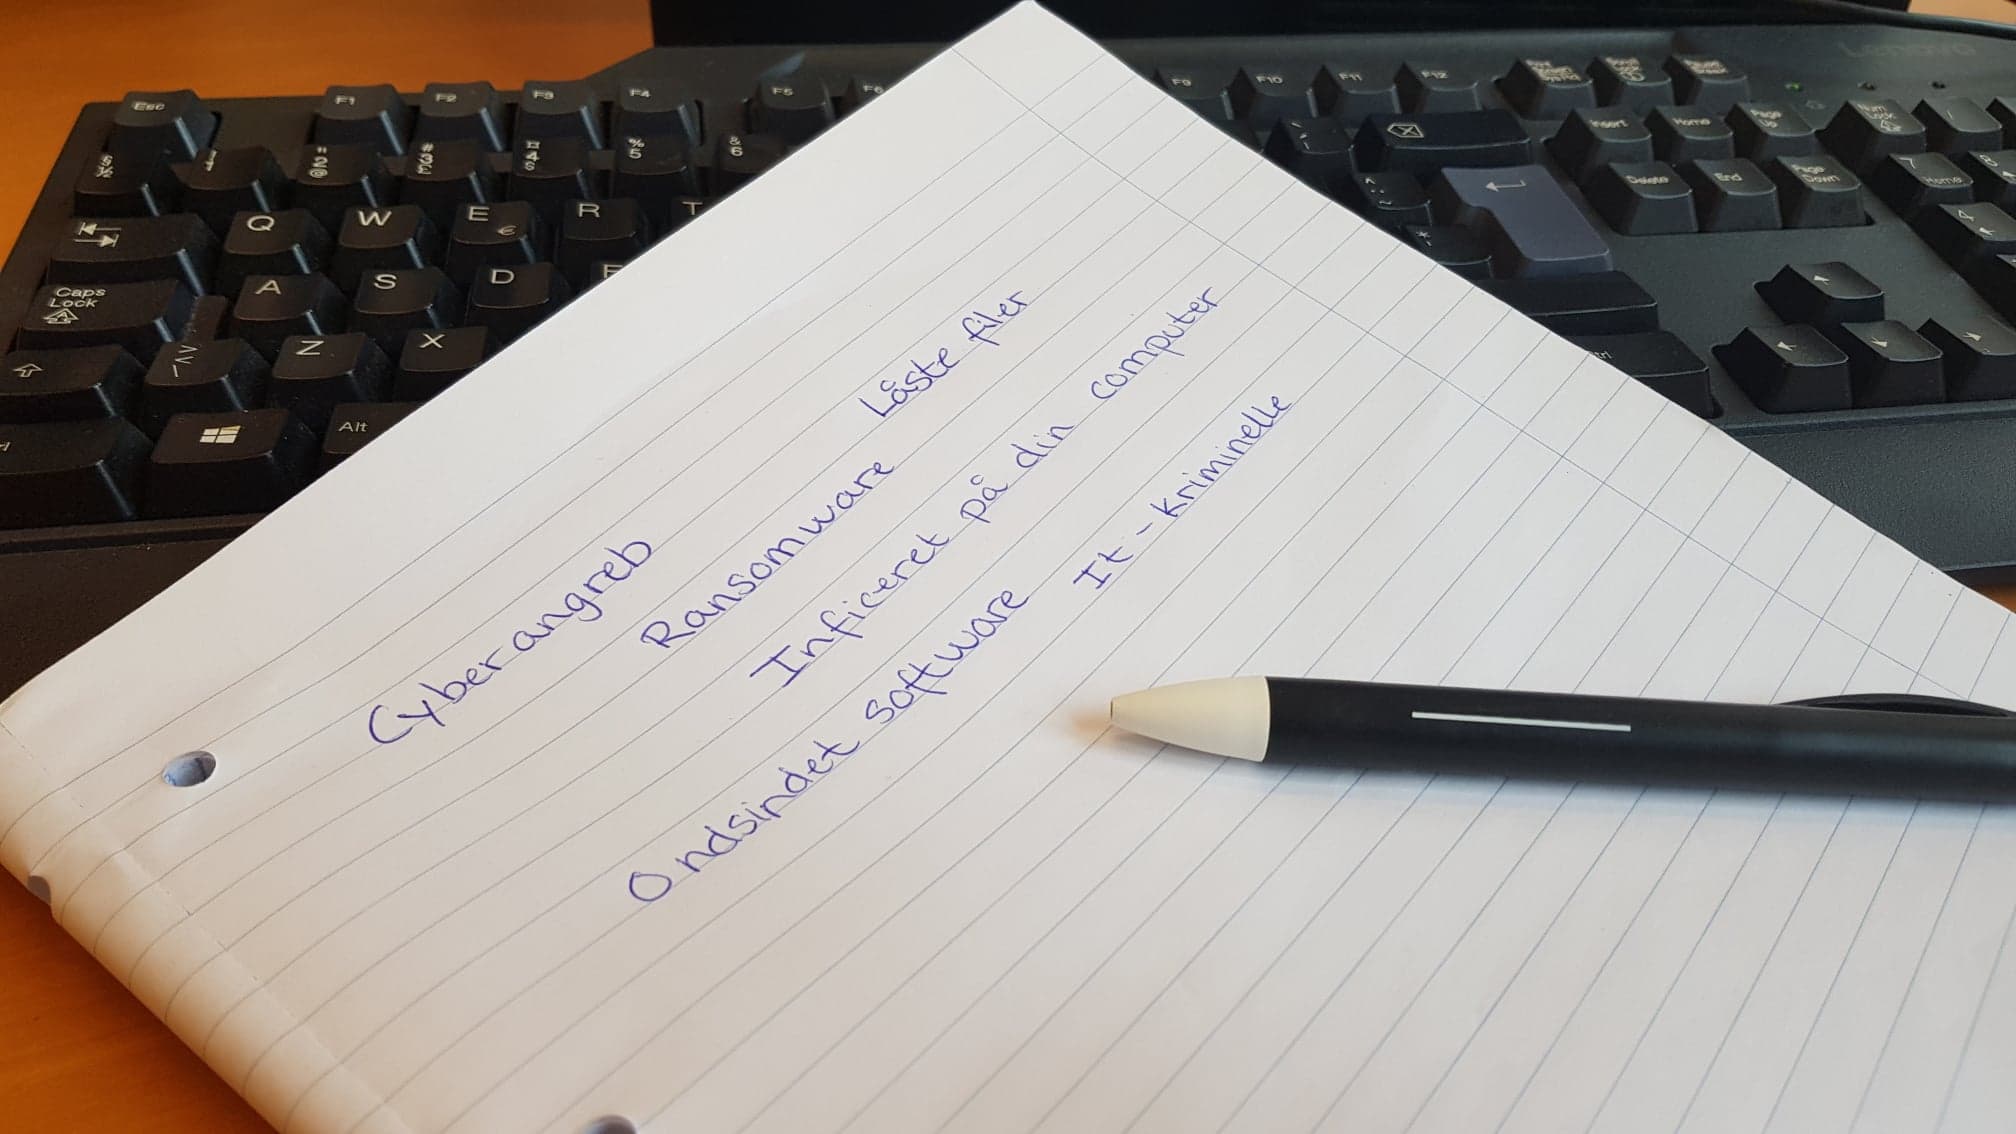 Cyberangreb
Ransomware Låste filer
Inficeret på din computer
Ondsindet software It-kriminelle
Esc F1 F2 F3 F4 F5 F6 F9 F10 F11 F12
Insert Home Page Up Num Lock
Delete End Page Down 7 Home 8
4
" 2 @ # 3 £ ¤ 4 % 5 & 6
Q W E € R T
Caps Lock A S D F
Z X
Alt
Lenovo